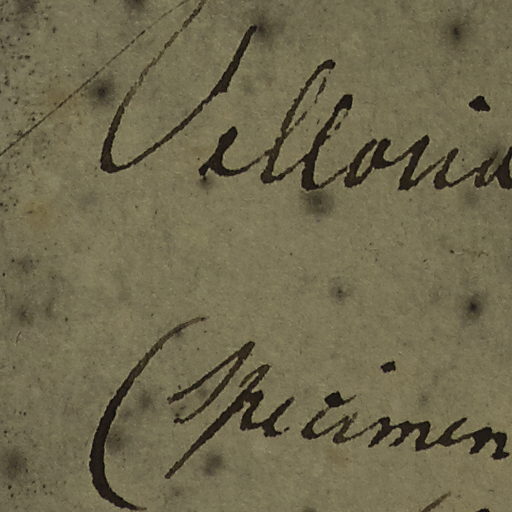 Velloria
(Specimen